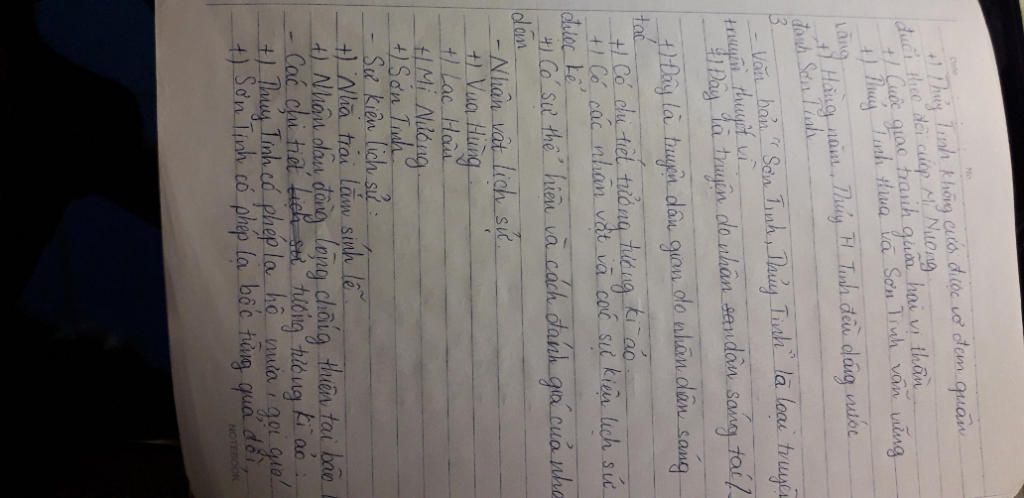 Date No.
+) Thủy Tinh không cưới được vợ đem quân
đuổi theo đòi cướp Mị Nương
+) Cuộc giao tranh giữa hai vị thần
+) Thủy Tinh thua và Sơn Tinh vẫn vững
vàng
+) Hằng năm, Thủy Tinh đều dâng nước
đánh Sơn Tinh
3
- Văn bản "Sơn Tinh, Thủy Tinh" là loại truyện
truyền thuyết vì
+) Đây là truyện do nhân dân sáng tác
+) Đây là truyện dân gian do nhân dân sáng
tác
+) Có chi tiết tưởng tượng kì ảo
+) Có các nhân vật và các sự kiện lịch sử
được kể
+) Có sự thể hiện và cách đánh giá của nhân
dân
- Nhân vật lịch sử.
+) Vua Hùng.
+) Lạc Hầu
+) Mị Nương
+) Sơn Tinh
- Sự kiện lịch sử:
+) Nhà trai lắm sính lễ.
+) Nhân dân đồng lòng chống thiên tai bão
- Các chi tiết lịch sử tưởng tượng kì ảo:
+) Thủy Tinh có phép lạ hô mưa, gọi gió
+) Sơn Tinh có phép lạ bốc từng quả đồi
NOTEBOOK